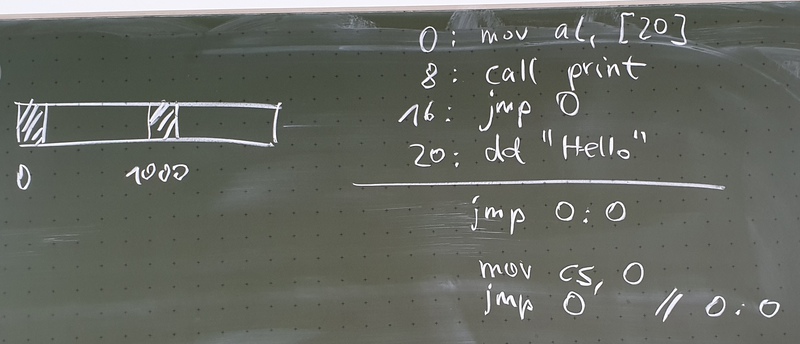 0: mov al, [20]
8: call print
16: jmp 0
20: dd "Hello"
0 1000
jmp 0:0
mov cs, 0
jmp 0 // 0:0